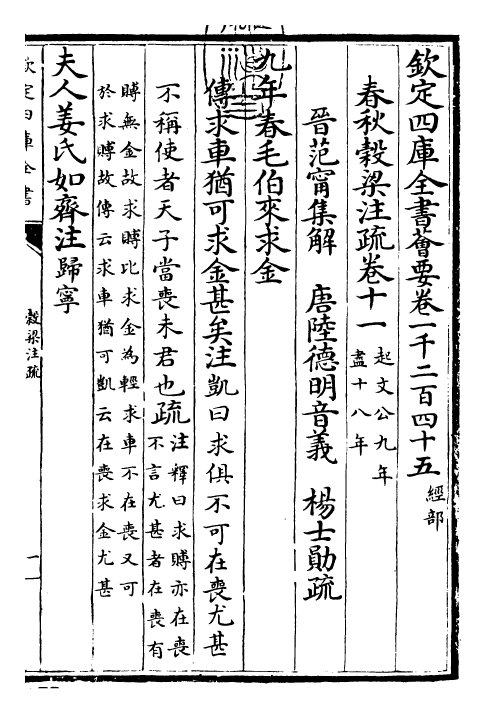 欽定四庫全書薈要卷一千二百四十五 經部
春秋穀梁注疏卷十一 起文公九年
盡十八年
晉范甯集解 唐陸德明音義 楊士勛疏
九年春毛伯來求金
傳求車猶可求金甚矣注凱曰求俱不可在喪尤甚
不稱使者天子當喪未君也疏
注釋曰求賻亦在喪
不言尤甚者在喪有
賻無金故求賻比求金為輕求車不在喪又可
於求賻故傳云求車猶可凱云在喪求金尤甚
夫人姜氏如齊注歸寧
欽定四庫全書
穀梁注疏
一